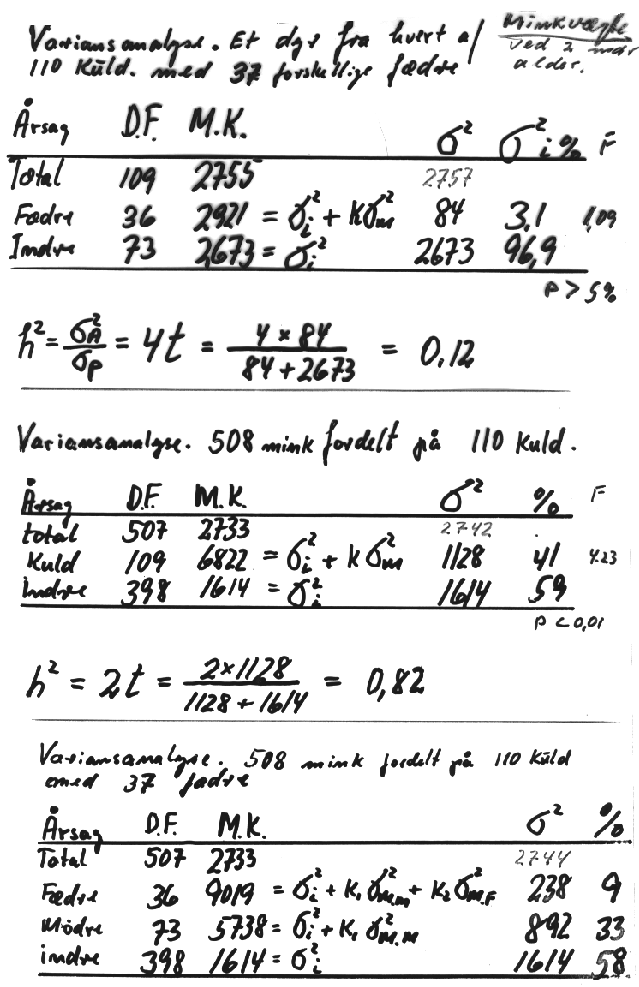 Variansanalyse. Et dyr fra hvert af
110 Küld. med 37 forskellige fædre
Minkvægte
ved 2 mdr
alder.
Årsag D.F. M.K. σ² σ²i% F
Total 109 2755 2757
Fædre 36 2921 = σ²i + Kσ²m 84 3,1 1,09
Indre 73 2673 = σ²i 2673 96,9
P > 5%
h² = σ²A/σp = 4t = 4 × 84 / 84 + 2673 = 0,12
Variansanalyse. 508 mink fordelt på 110 Kuld.
Årsag D.F. M.K. σ² % F
total 507 2733 2742
Kuld 109 6822 = σ²i + kσ²m 1128 41 4.23
indre 398 1614 = σ²i 1614 59
P < 0,01
h² = 2t = 2×1128 / 1128 + 1614 = 0,82
Variansanalyse. 508 mink fordelt på 110 Küld
med 37 fædre
Årsag D.F. M.K. σ² %
Total 507 2733 2744
Fædre 36 9019 = σ²i + K₁σ²M.M + K₂σ²M.F 238 9
Mödre 73 5738 = σ²i + K₁σ²M.M 892 33
indre 398 1614 = σ²i 1614 58